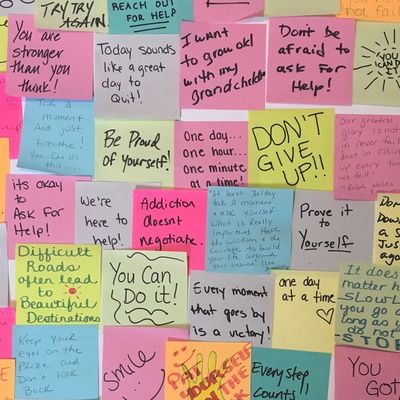 TRY TRY
AGAIN.
REACH OUT
FOR HELP!
You are
stronger
than you
think!
Today sounds
like a great
day to
Quit!
I want
to grow old
with my
grandchildren
Don't be
afraid to
ask For
Help!
YOU
CAN DO
IT!
not fail
Take A
moment
And just
breathe!
You Can do
this...
Be Proud
of Yourself!
One day...
One hour...
one minute
at a time!
DON'T
GIVE
UP!!
Our greatest
glory is not
in never
but in
up every
we fall"
its okay
to
Ask For
Help!
We're
here to
help!
Addiction
doesn't
negotiate.
take A moment
& ask yourself
what is Really
important. Have
the wisdom & the
courage to build
your life around
your answer
Prove it
to
Yourself
Difficult
Roads
often lead
to
Beautiful
Destinations
You Can
Do it!
Every moment
that goes by
is a victory!
one day
at a time
It does
matter
SLOWL
you go
long as
do not
STOP
Keep your
eyes on the
Prize and
Don't look
Back
Smile
PAT YOURSELF
ON THE
Every step
counts!
YOU
GOT